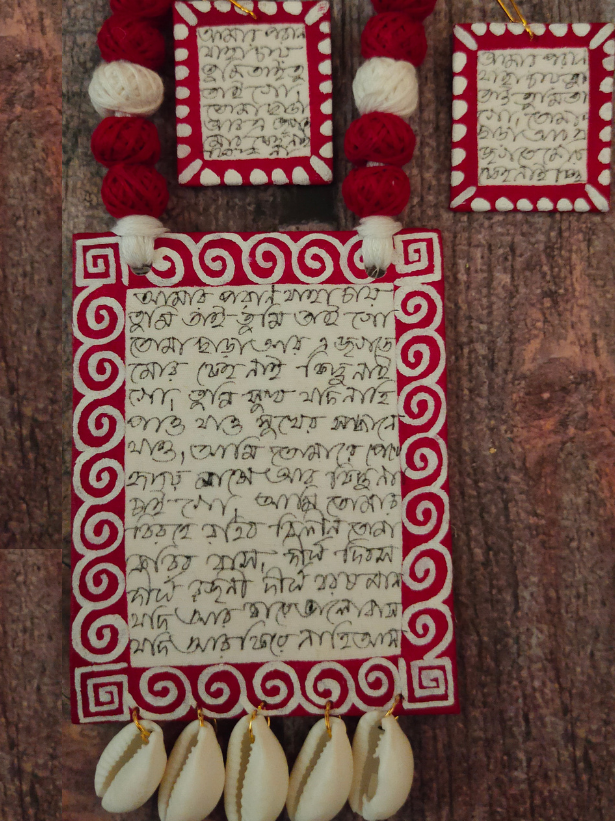 আমার পরান
যাহা চায়
তুমি তাই তু
তাই গো
তোমা ছাড়া
আর এ জগতে
আমার পরান
যাহা চায় তুমি
তাই তুমি তা
গো, তোমা
ছাড়া আর এ
জগতে মোর
কেহ নাই কিছু
আমার পরান যাহা চায়
তুমি তাই তুমি তাই গো
তোমা ছাড়া আর এ জগতে
মোর কেহ নাই কিছু নাই
গো, তুমি সুখ যদি নাহি
পাও যাও সুখের সন্ধানে
যাও, আমি তোমারে পেয়ে
হৃদয় মাঝে আর কিছু না
চাই গো, আমি তোমার
বিরহে রহিব বিলীন তোমা
করিব বাস, দীর্ঘ দিবস
দীর্ঘ রজনী দীর্ঘ বরষ মাস
যদি আর কারে ভালোবাস
যদি আর ফিরে নাহি আস